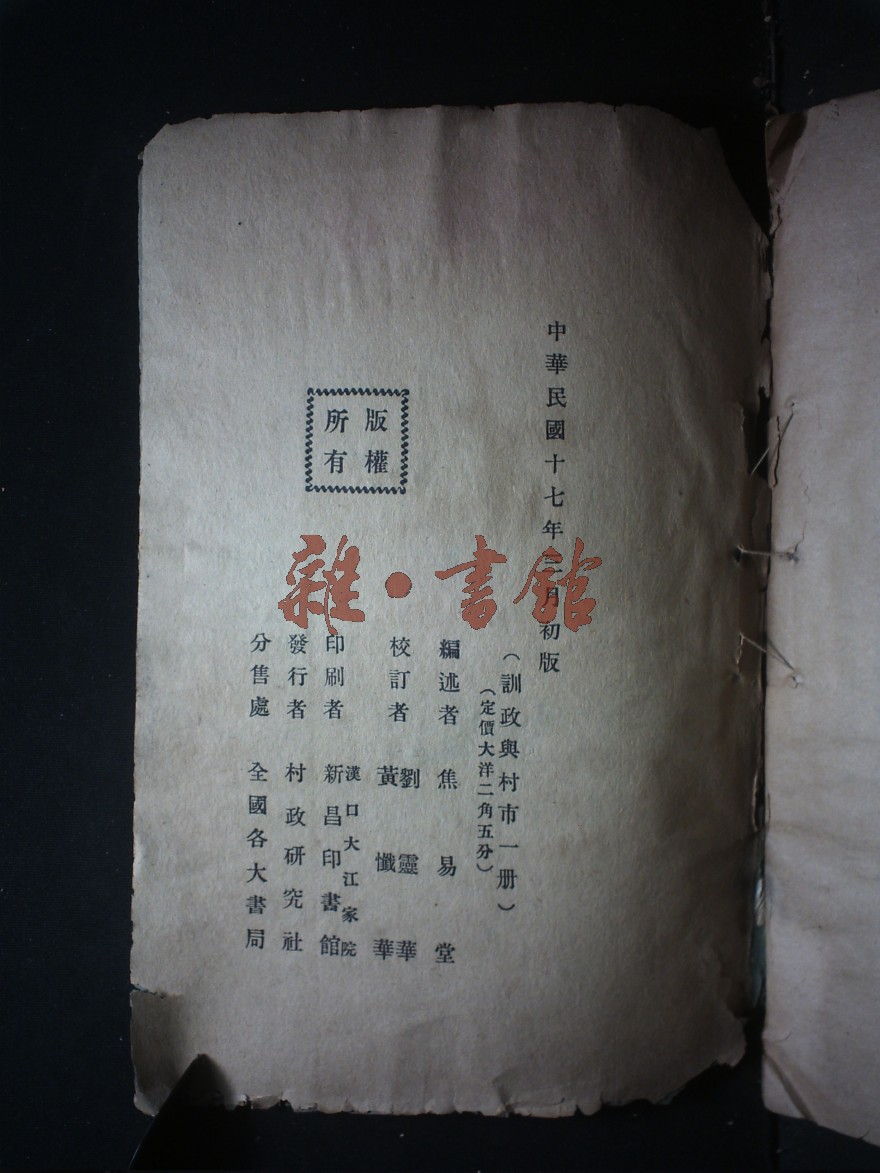 中華民國十七年三月初版
（訓政與村市一册）
（定價大洋二角五分）
編述者 焦易堂
校訂者 劉靈華
黃懺華
漢口大江家院
印刷者 新昌印書館
發行者 村政研究社
分售處 全國各大書局
版權
所有
雜·書館